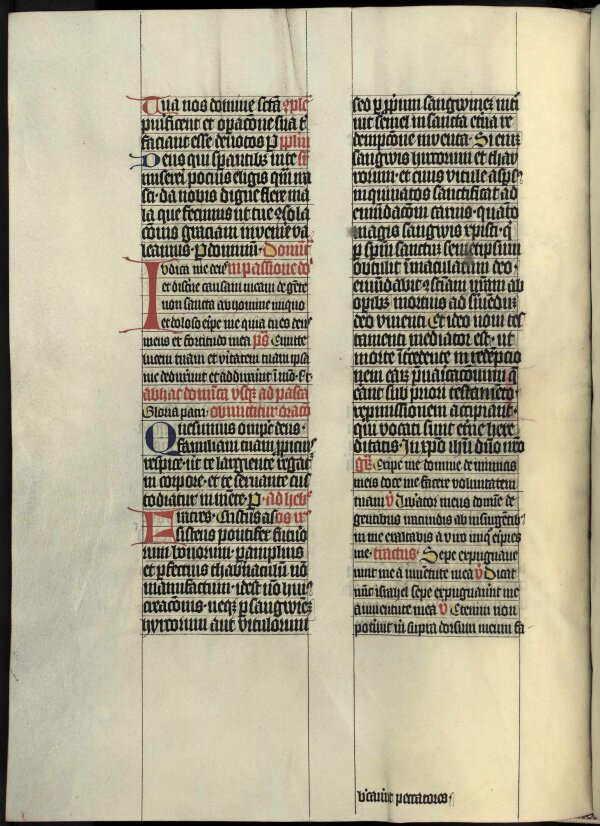 Tua nos domine sc̄ta 2ple
purificent et op̄acōne sua t̄
faciant esse deuotos P pplm̄
Deus qui sp̄antib; in te
misereri pocius eligis qm̄ ira
sci· da nobis digne flere ma
la que fecimus ut tue 2sola
cōnis graciam inuenire va
leamus· P dominū· Domīc̄
Iudica me deus in passione do
et discn̄e causam meam de gēte
non sancta ab homine iniquo
et doloso eripe me quia tu es deus
meus et fortitudo mea ps̄ Emitte
lucem tuam et vĩtatem tuam ipsa
me deduxerūt et adduxerūt i mō· Et
ab hac domīca vsq; ad pasca
Gloria patri· obmittitur oracō
Quesumus omp̄c deus·
familiam tuam ppicius
respice· ut te largiente regat̄
in corpore· et te seruante cus
todiatur in mēte P· ad heb̄
Fratres· Cristus assistens
pontifex futuro
rum bonorum· p̄ amplius
et p̄fectius thabnaculū nō
manufactum· id est nō hui9
creacōnis· neq; p̄ sangwinē
hyrcorum aut vitulorum
seo p̄ p̄prium sangwinez int̄i
uit semel in sancta etn̄a re
dempcōne inuenta· Si enī
sangwis hyrcorum et thau
rorum· et cinis vitule asp̄s9
inquinatos sanctificat ad
emūdacōm carnis· quāto
magis sangwis cristi· q̇
p̄ spm̄ sanctū semetipsum
obtulit īmaculatum deo·
emūdabit 9sciam nr̄am ab
opib; mortuis ad s̄uiendū
deo viuenti· Et ideo noui tes
tamenti mediator est· ut
morte īt̄cedente in redēpcio
nem earū p̄uaricacionū q̄
erant sub priori testamēto·
repmissionem accipiant·
qui vocati sunt et̄ne here
ditatis· In xpō ihū dn̄o nr̄o
gr̄· Eripe me domine de inimicis
meis doce me facere voluntatem
tuam V Libator meus domīe de
gentibus iracundis ab insurgētib;
in me exaltabis a viro iniq̊ eripies
me· tractus· Sepe expugnaue
runt me a iuuentute mea V Dicat
nūc israhel sepe expugnauerūt me
a iuuentute mea V Etenim non
potuer̄t m̄ supra dorsum meum fa
b'cauer̄t peccatores·